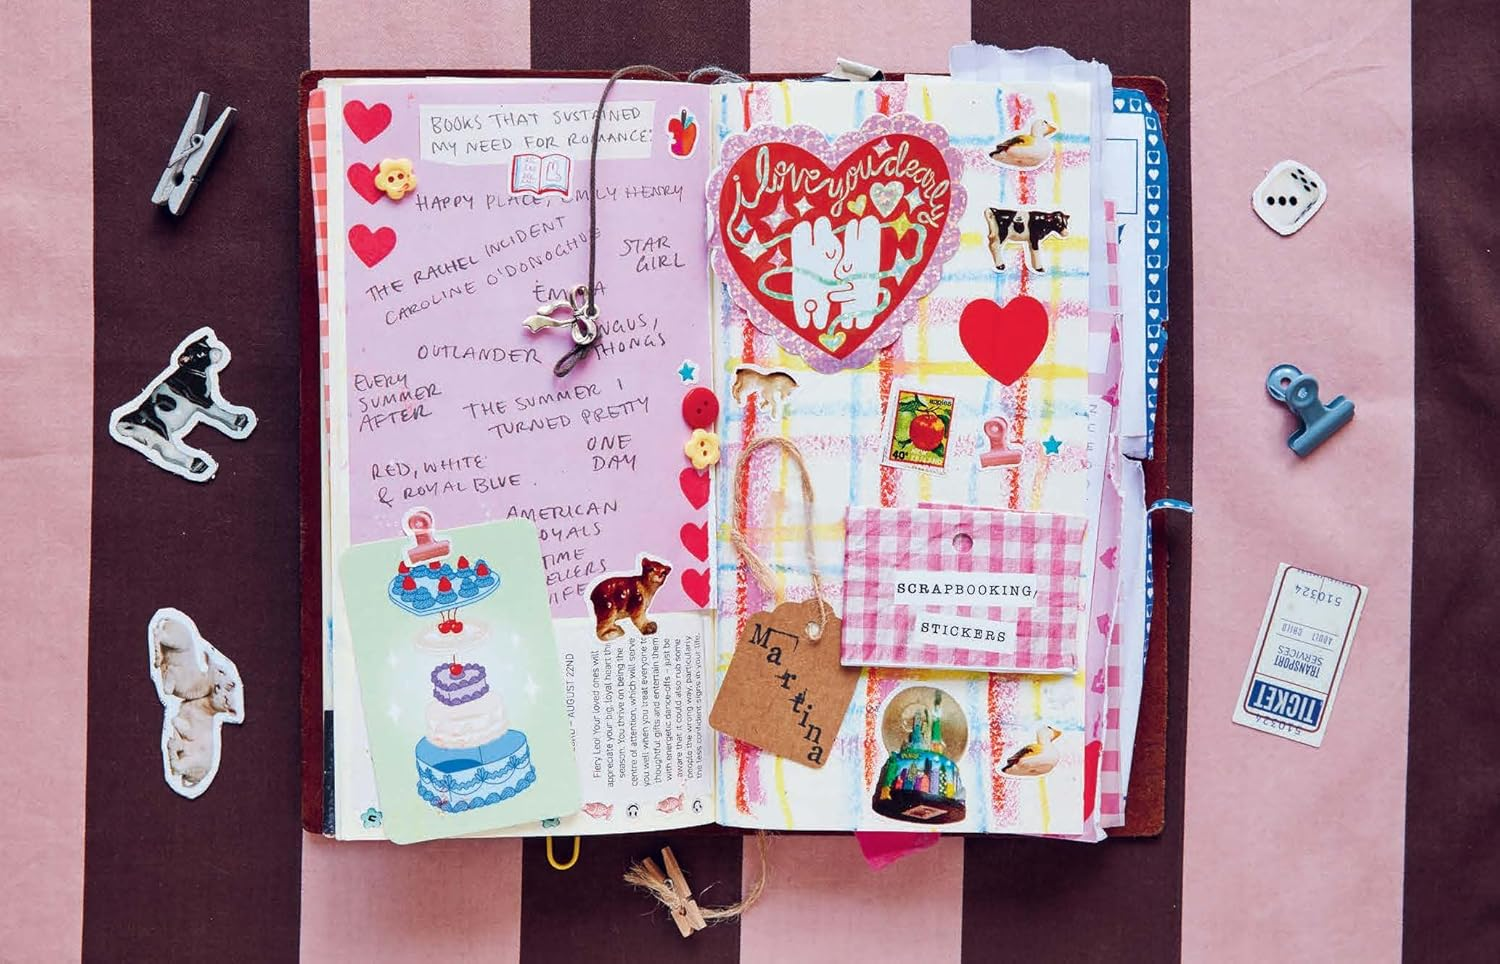 BOOKS THAT SUSTAINED
MY NEED FOR ROMANCE:
HAPPY PLACE, EMILY HENRY
THE RACHEL INCIDENT
CAROLINE O'DONOGHUE
STAR
GIRL
EMMA
OUTLANDER
THONGS
EVERY
SUMMER
AFTER
THE SUMMER I
TURNED PRETTY
ONE
DAY
RED, WHITE
& ROYAL BLUE.
AMERICAN
OYALS
TIME
ELLERS
IFE
– AUGUST 22ND
Fiery Leo! Your loved ones will
appreciate your big, loyal heart this
season. You thrive on being the
centre of attention, which will serve
you well when you treat everyone to
thoughtful gifts and entertain them
with energetic dance-offs – just be
aware that it could also rub some
people the wrong way, particularly
the less confident signs in your life.
i love you dearly
apples
40c
NEW
ZEALAND
SCRAPBOOKING/
STICKERS
Martina
510324
ADULT CHILD
TRANSPORT
SERVICES
TICKET
510324